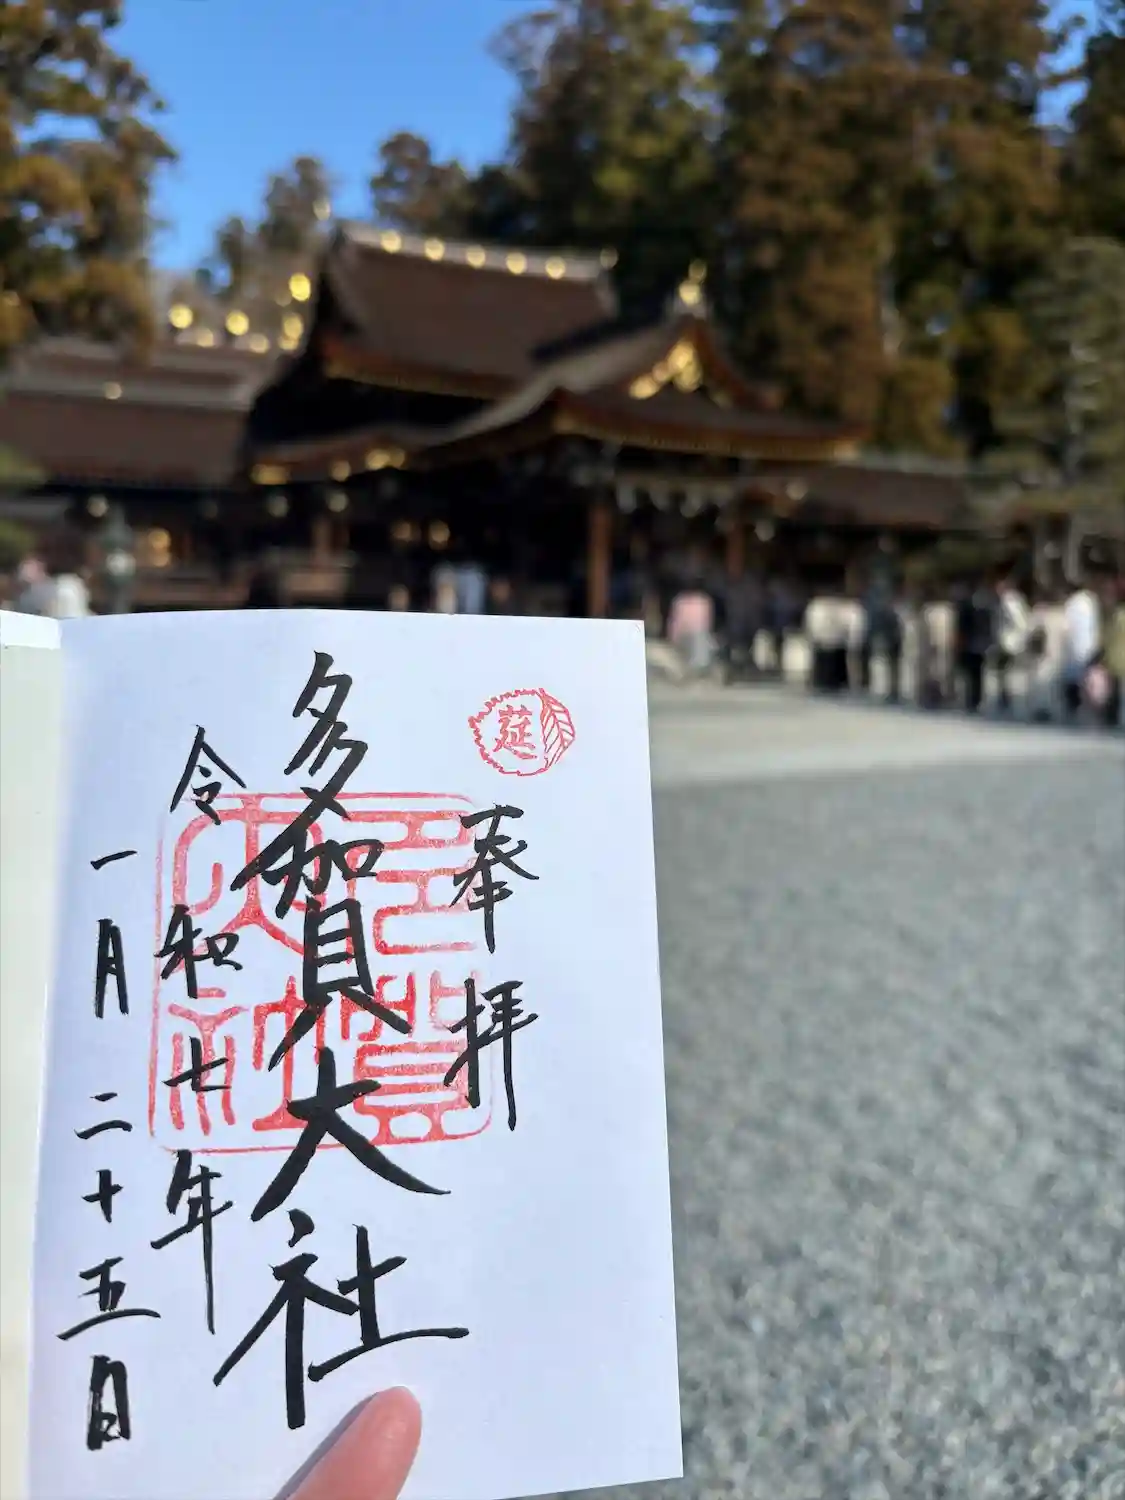 莚
奉拝
多賀大社
多賀大社
令和七年
一月二十五日